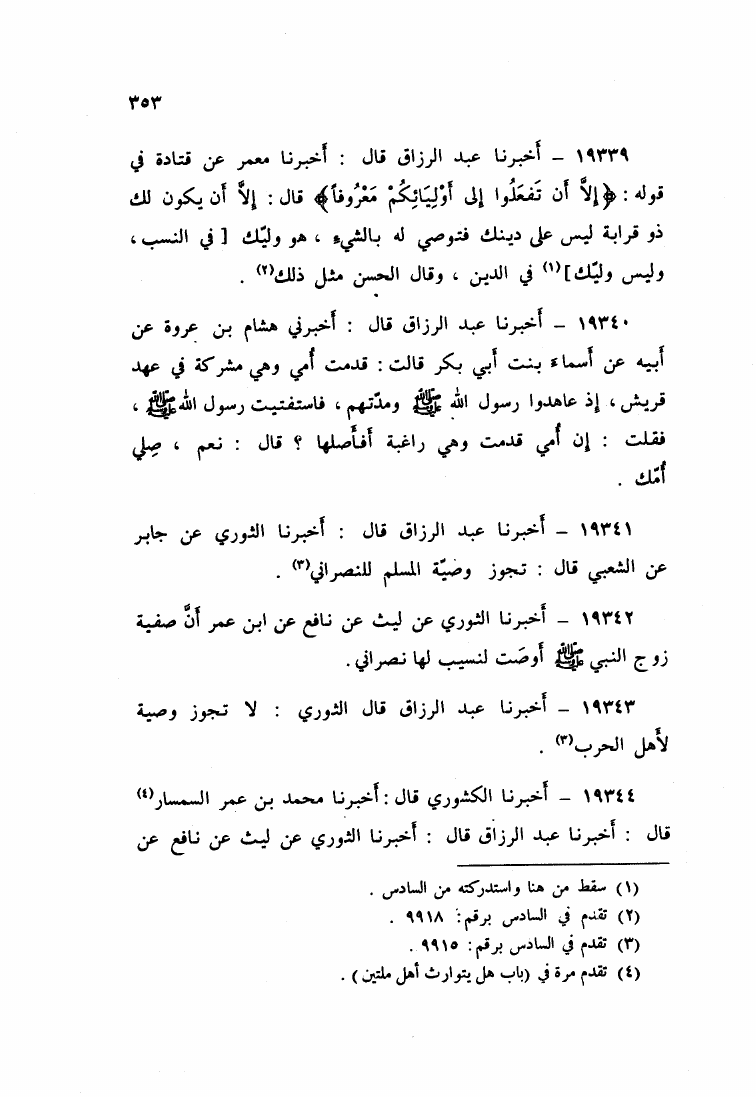 ٣٥٣
١٩٣٣٩ – أَخبرنا عبد الرزاق قال : أَخبرنا معمر عن قتادة في
قوله : ﴿إِلاَّ أَن تَفعَلُوا إِلى أَوْلِيَائِكُمْ مَعْرُوفاً﴾ قال : إِلاَّ أَن يكون لك
ذو قرابة ليس على دينك فتوصي له بالشيءِ ، هو وليّك [ في النسب ،
وليس وليّك](١) في الدين ، وقال الحسن مثل ذلك(٢) .
١٩٣٤٠ – أَخبرنا عبد الرزاق قال : أَخبرني هشام بن عروة عن
أَبيه عن أَسماءَ بنت أَبي بكر قالت : قدمت أُمي وهي مشركة في عهد
قريش ، إِذ عاهدوا رسول الله ﷺ ومدّتهم ، فاستفتيت رسول الله ﷺ ،
فقلت : إِن أُمي قدمت وهي راغبة أَفأَصلها ؟ قال : نعم ، صِلي
أُمّك .
١٩٣٤١ – أَخبرنا عبد الرزاق قال : أَخبرنا الثوري عن جابر
عن الشعبي قال : تجوز وصيّة المسلم للنصراني(٣) .
١٩٣٤٢ – أَخبرنا الثوري عن ليث عن نافع عن ابن عمر أَنَّ صفية
زوج النبي ﷺ أَوصَت لنسيب لها نصراني .
١٩٣٤٣ – أَخبرنا عبد الرزاق قال الثوري : لا تجوز وصية
لأَهل الحرب(٣) .
١٩٣٤٤ – أَخبرنا الكشوري قال : أَخبرنا محمد بن عمر السمسار(٤)
قال : أَخبرنا عبد الرزاق قال : أَخبرنا الثوري عن ليث عن نافع عن
(١) سقط من هنا واستدركته من السادس .
(٢) تقدم في السادس برقم: ٩٩١٨ .
(٣) تقدم في السادس برقم: ٩٩١٥ .
(٤) تقدم مرة في (باب هل يتوارث أهل ملتين ) .